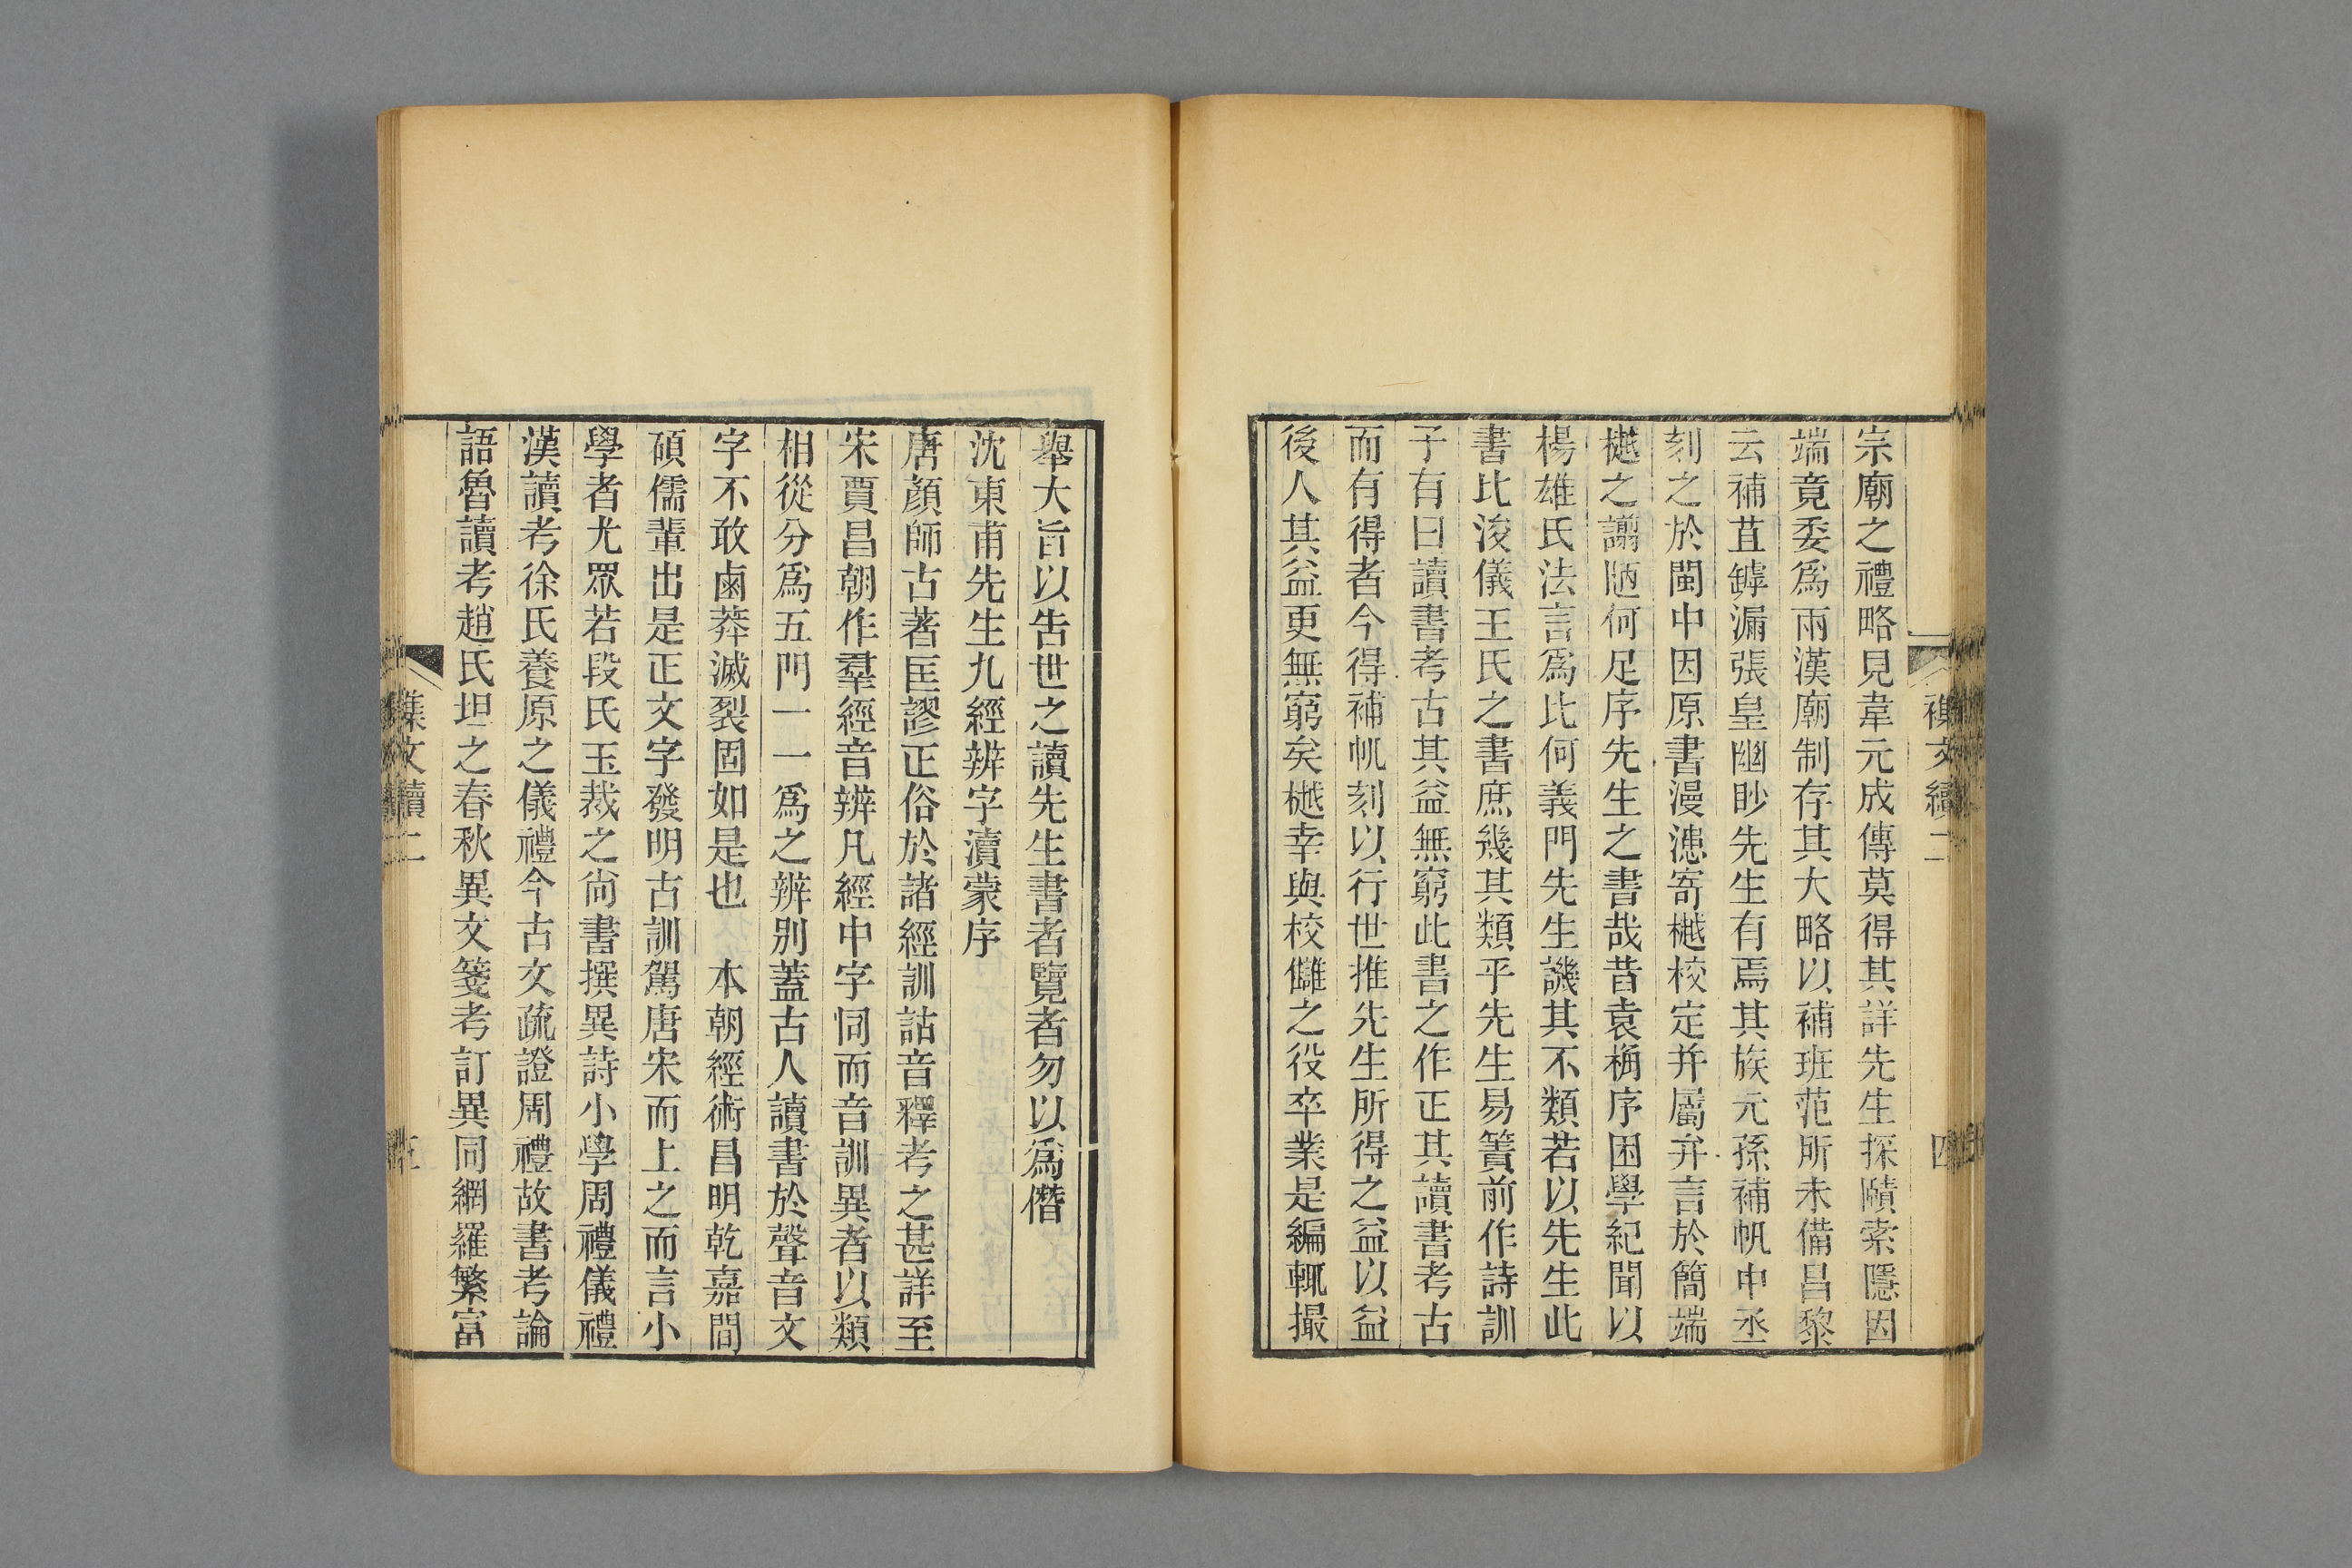 襍文續二
四
宗廟之禮略見韋元成傳莫得其詳先生探賾索隱因
端竟委爲兩漢廟制存其大略以補班范所未備昌黎
云補苴罅漏張皇幽眇先生有焉其族元孫補帆中丞
刻之於閩中因原書漫漶寄樾校定并屬弁言於簡端
樾之譾陋何足序先生之書哉昔袁桷序困學紀聞以
楊雄氏法言爲比何義門先生譏其不類若以先生此
書比浚儀王氏之書庶幾其類乎先生易簀前作詩訓
子有曰讀書考古其益無窮此書之作正其讀書考古
而有得者今得補帆刻以行世推先生所得之益以益
後人其益更無窮矣樾幸與校讎之役卒業是編輒撮
舉大旨以告世之讀先生書者覽者勿以爲僭
沈東甫先生九經辨字瀆蒙序
唐顏師古著匡謬正俗於諸經訓詁音釋考之甚詳至
宋賈昌朝作羣經音辨凡經中字同而音訓異者以類
相從分爲五門一一爲之辨別蓋古人讀書於聲音文
字不敢鹵莽滅裂固如是也　本朝經術昌明乾嘉間
碩儒輩出是正文字發明古訓駕唐宋而上之而言小
學者尤眾若段氏玉裁之尚書撰異詩小學周禮儀禮
漢讀考徐氏養原之儀禮今古文疏證周禮故書考論
語魯讀考趙氏坦之春秋異文箋考訂異同網羅繁富
襍文續二
五